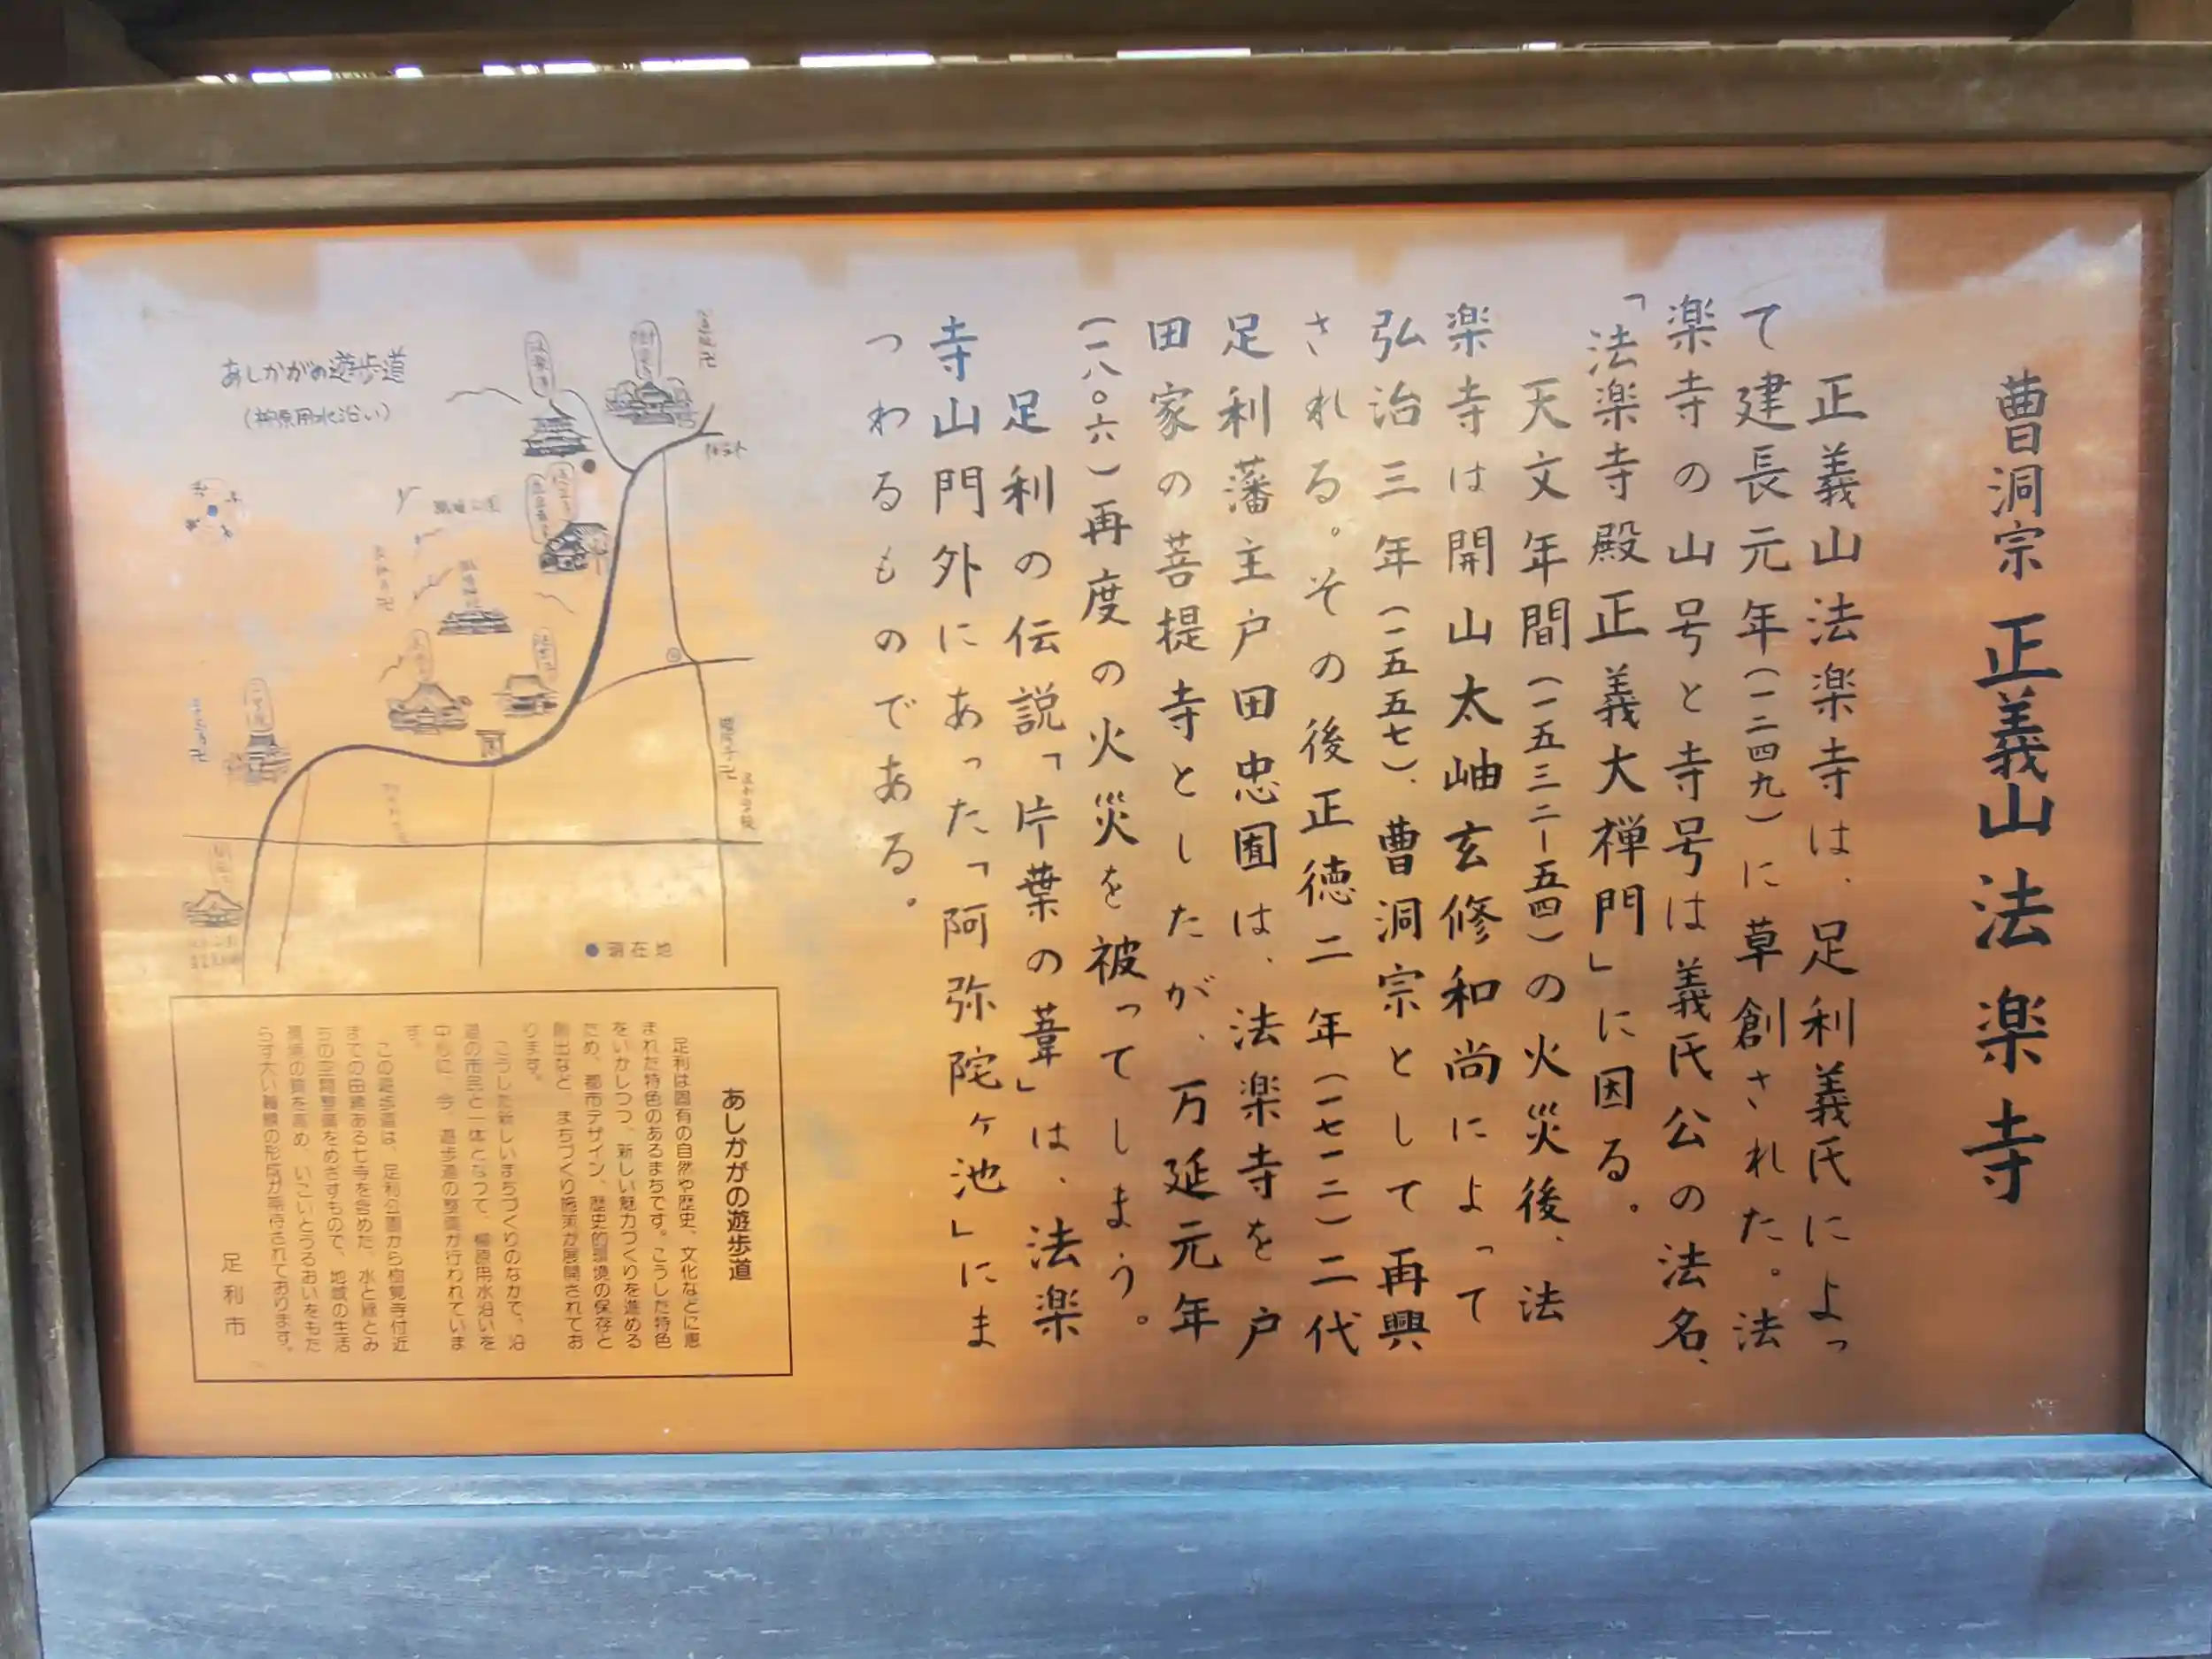 曹洞宗 正義山 法楽寺
正義山法楽寺は、足利義氏によっ
て建長元年(一二四九)に草創された。法
楽寺の山号と寺号は義氏公の法名、
「法楽寺殿正義大禅門」に因る。
天文年間(一五三二―五四)の火災後、法
楽寺は開山太岫玄修和尚によって
弘治三年(一五五七)、曹洞宗として再興
される。その後正徳二年(一七一二)二代
足利藩主戸田忠囿は、法楽寺を戸
田家の菩提寺としたが、万延元年
(一八〇六)再度の火災を被ってしまう。
足利の伝説「片葉の葦」は、法楽
寺山門外にあった「阿弥陀ヶ池」にま
つわるものである。
あしかがの遊歩道
(柳原用水沿い)
●現在地
あしかがの遊歩道
足利は固有の自然や歴史、文化などに恵
まれた特色のあるまちです。こうした特色
をいかしつつ、新しい魅力づくりを進める
ため、都市デザイン、歴史的環境の保存と
創出など、まちづくり施策が展開されてお
ります。
こうした新しいまちづくりのなかで、沿
道の市民と一体となって、柳原用水沿いを
中心に、今、遊歩道の整備が行われていま
す。
この遊歩道は、足利公園から樹覚寺付近
までの由緒ある七寺を含めた、水と緑とみ
ちの空間整備をめざすもので、地域の生活
環境の質を高め、いこいとうるおいをもた
らす大い軸線の形成が期待されております。
足利市